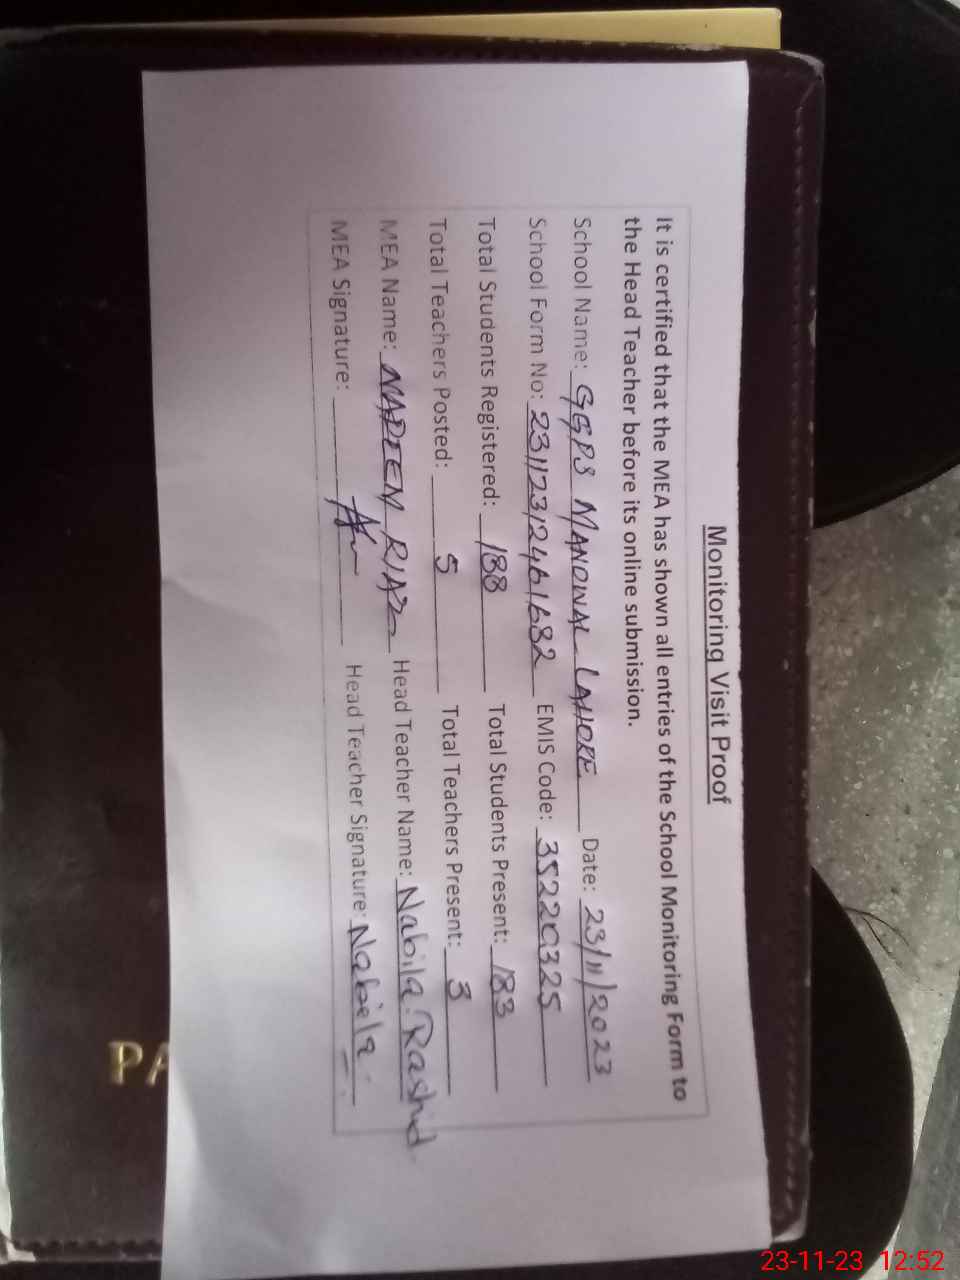 Monitoring Visit Proof
It is certified that the MEA has shown all entries of the School Monitoring Form to
the Head Teacher before its online submission.
School Name: GGPS MANDWAL LAHORE Date: 23/11/2023
School Form No: 23112312461682 EMIS Code: 35220325
Total Students Registered: 188 Total Students Present: 183
Total Teachers Posted: 5 Total Teachers Present: 3
MEA Name: NADEEM RIAZ Head Teacher Name: Nabila Rashid
MEA Signature: Head Teacher Signature: Nabila
PA
23-11-23 12:52